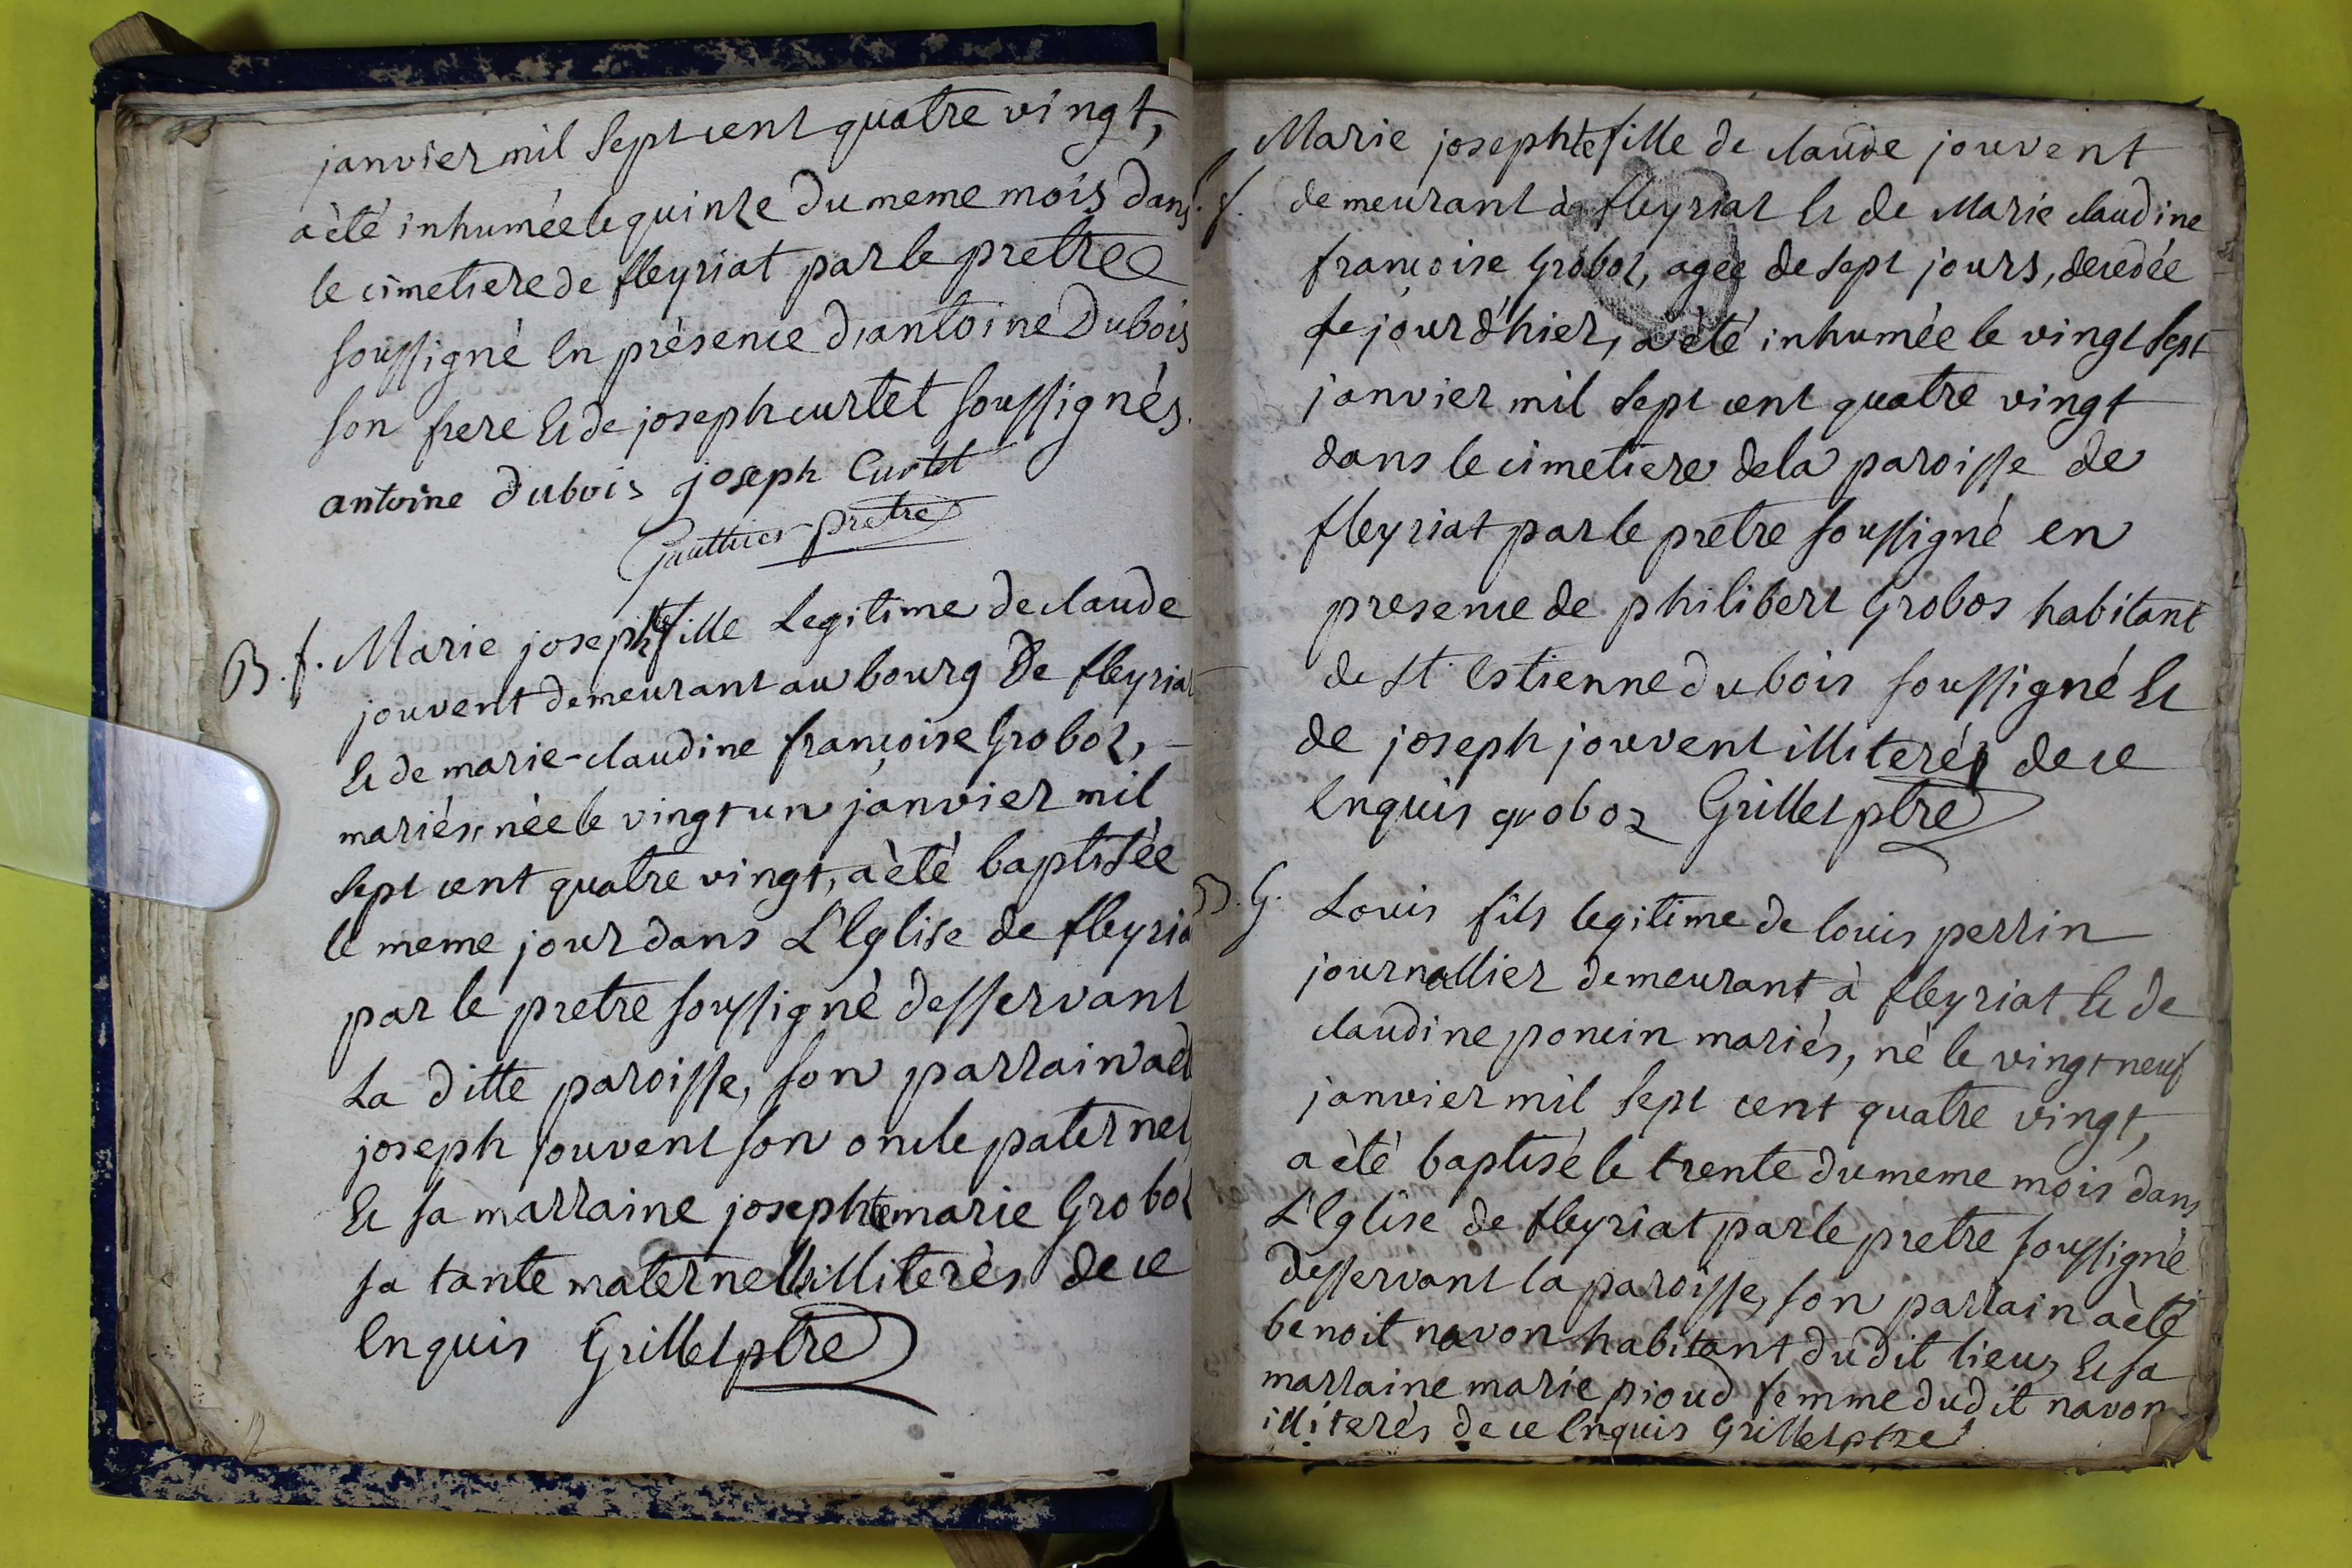 janvier mil sept cent quatre vingt,
a èté inhumée le quinze du meme mois dans
le cimetiere de fleyriat par le pretre
soussigné en présence d'antoine Dubois
son frere et de joseph curtet soussignés.
antoine dubois joseph Curtet
Gauthier prètre
B. f. Marie josephte fille Legitime de claude
jouvent demeurant au bourg De fleyriat
et de marie-claudine françoise Groboz,
mariés, née le vingt un janvier mil
sept cent quatre vingt, a èté baptisée
le meme jour dans L'Eglise de fleyria
par le pretre soussigné desservant
La ditte paroisse, son parrain a èt
joseph jouvent son oncle paternel
et sa marraine josephte marie Groboz
sa tante maternelle illiterès de ce
Enquis Grillet ptre
Marie josephte fille de claude jouvent
f. demeurant à fleyriat et de Marie claudine
françoise Groboz, agée de sept jours, decedée
le jour d'hier, a èté inhumée le vingt sept
janvier mil sept cent quatre vingt
dans le cimetiere de la paroisse de
fleyriat par le pretre soussigné en
presence de philibert Grobos habitant
de st Estienne du bois soussigné et
de joseph jouvent illiteré de ce
Enquis groboz Grillet ptre
B. G. Louis fils legitime de louis perrin
journallier demeurant à fleyriat et de
claudine poncin mariés, né le vingt neuf
janvier mil sept cent quatre vingt,
a èté baptisé le trente du meme mois dans
L'Eglise de fleyriat par le pretre soussigné
desservant la paroisse, son parrain a èté
benoit navon habitant dudit lieu, et sa
marraine marie pioud femme dudit navon
illiterés de ce Enquis Grillet ptre